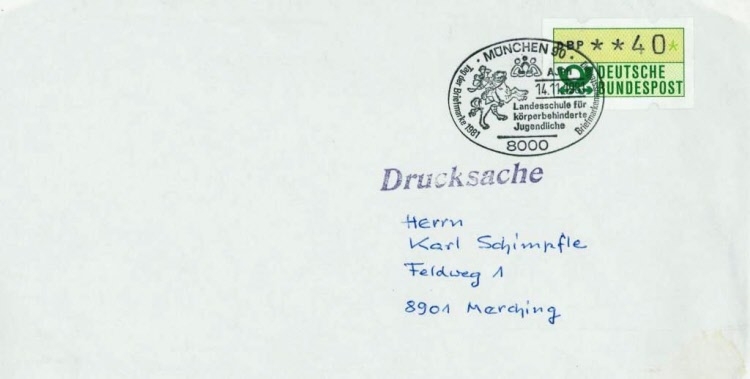 DBP **40*
DEUTSCHE
BUNDESPOST
· MÜNCHEN 90 ·
Tag der Briefmarke 1981
14.11.1981
Landesschule für
körperbehinderte
Jugendliche
8000
Drucksache
Herrn
Karl Schimpfle
Feldweg 1
8901 Merching